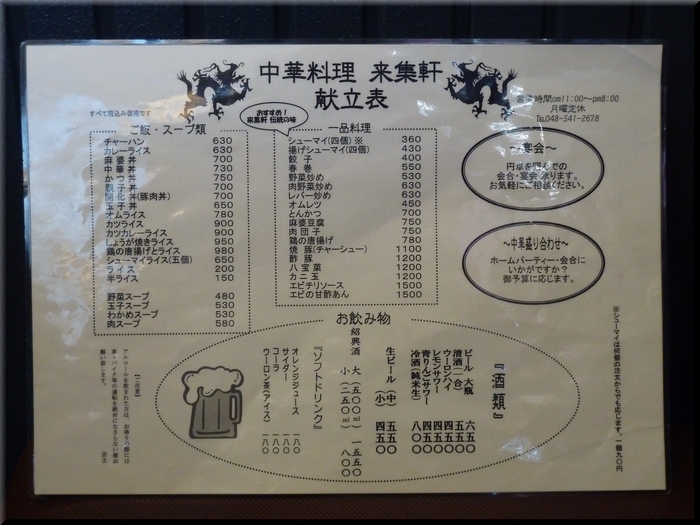 中華料理 来集軒
献立表
営業時間am11:00～pm8:00
月曜定休
℡048-541-2678
すべて税込み価格です
おすすめ！
来集軒 伝統の味
ご飯・スープ類
チャーハン 630
カレーライス 630
麻婆丼 700
中華丼 730
かつ丼 750
餃子丼 700
開化丼(豚肉丼) 700
玉子丼 650
オムライス 780
カツライス 900
カツカレーライス 900
しょうが焼きライス 950
鶏の唐揚げとライス 980
シューマイライス(五個) 650
ライス 200
半ライス 150
野菜スープ 480
玉子スープ 530
わかめスープ 530
肉スープ 580
一品料理
シューマイ(四個)※ 360
揚げシューマイ(四個) 430
餃子 400
春巻 550
野菜炒め 530
肉野菜炒め 630
レバー炒め 630
オムレツ 450
とんかつ 700
麻婆豆腐 750
肉団子 750
鶏の唐揚げ 780
焼豚(チャーシュー) 1100
酢豚 1200
八宝菜 1200
カニ玉 1200
エビチリソース 1500
エビの甘酢あん 1500
～宴会～
円卓を囲んでの
会合・宴会 承ります。
お気軽にご相談ください。
～中華盛り合わせ～
ホームパーティー・会合に
いかがですか？
御予算に応じます。
※シューマイは何個の注文からでも応じます。一個九〇円
お飲み物
『酒類』
ビール 大瓶 六五〇
清酒(一合) 四五〇
ウーロンハイ 四五〇
レモンサワー 四五〇
青りんごサワー 四五〇
冷酒(純米生) 八〇〇
生ビール (中) 五五〇
(小) 四五〇
紹興酒 大(五〇〇ml) 一五五〇
小(二五〇ml) 八〇〇
『ソフトドリンク』
オレンジジュース 一八〇
サイダー 一八〇
コーラ 一八〇
ウーロン茶(アイス) 一八〇
アルコールを飲まれた方は、お帰りの際には
願い致します。
店主